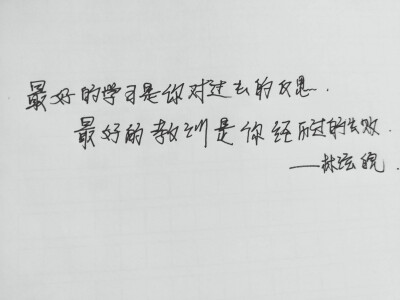 最好的学习是你对过去的反思.
最好的教训是你经历过的失败.
——林弦皖